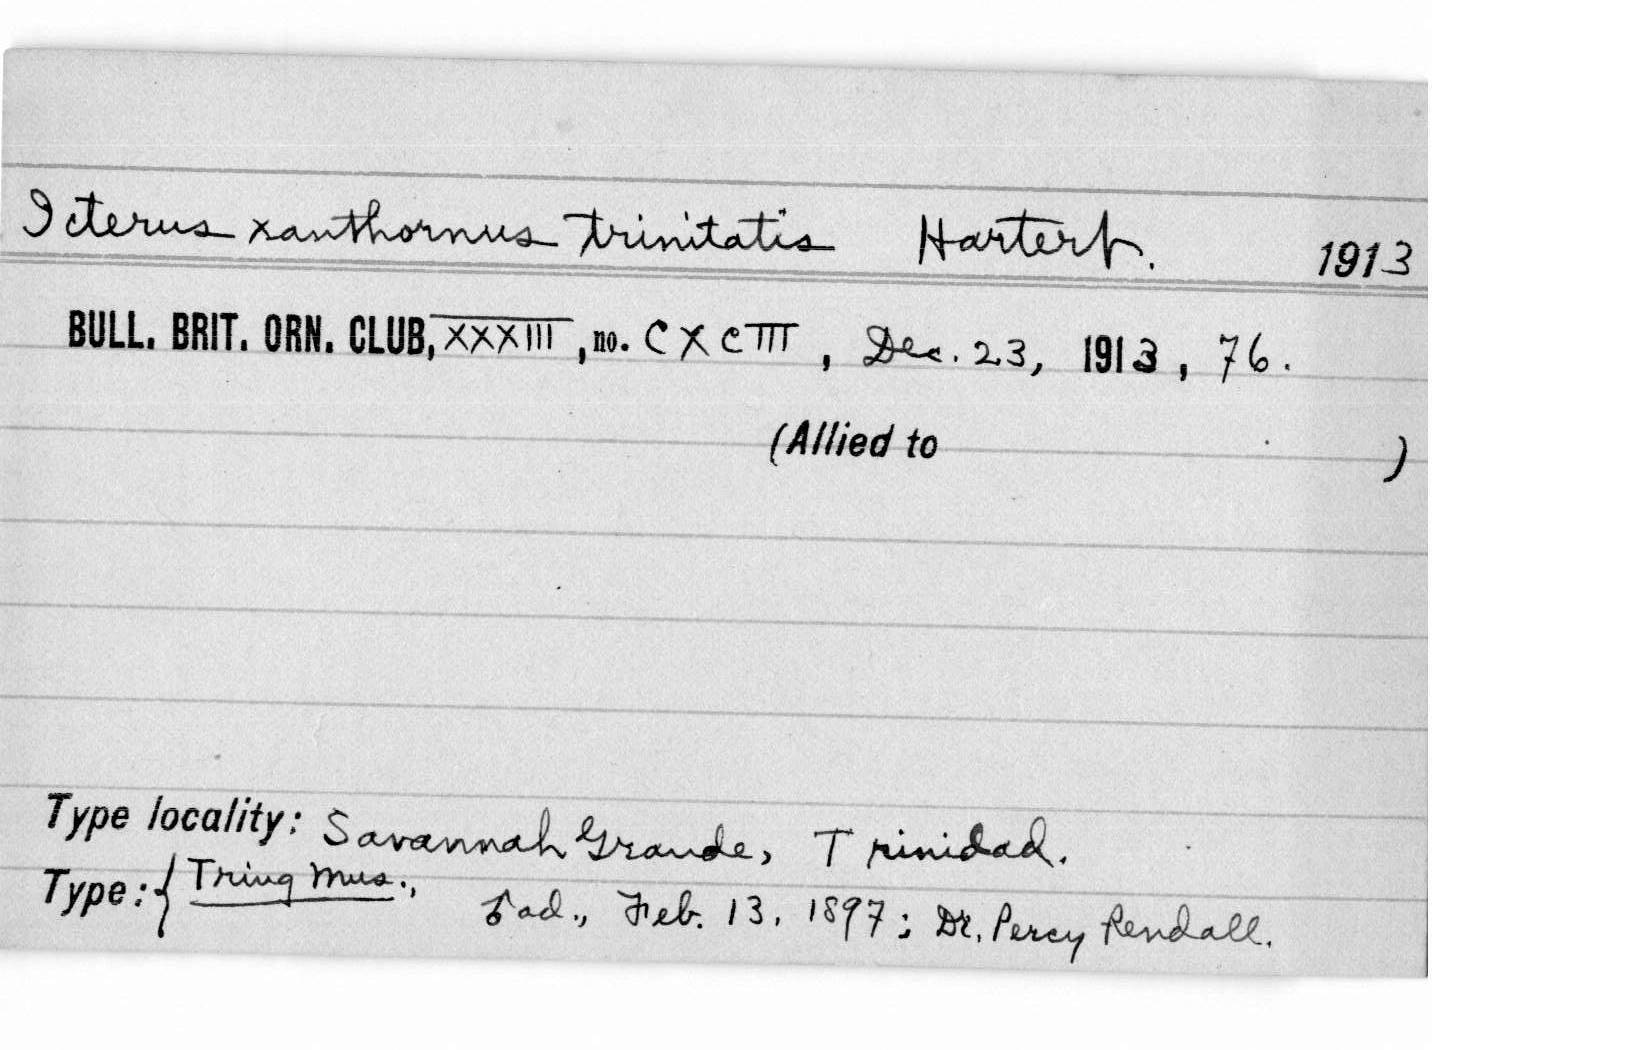 Icterus xanthornus trinitatis Hartert. 1913
BULL. BRIT. ORN. CLUB, XXXIII, no. CXCIII, Dec. 23, 1913, 76.
(Allied to )
Type locality: Savannah Grande, Trinidad.
Type: { Tring Mus., ad., Feb. 13, 1897; Dr. Percy Rendall.